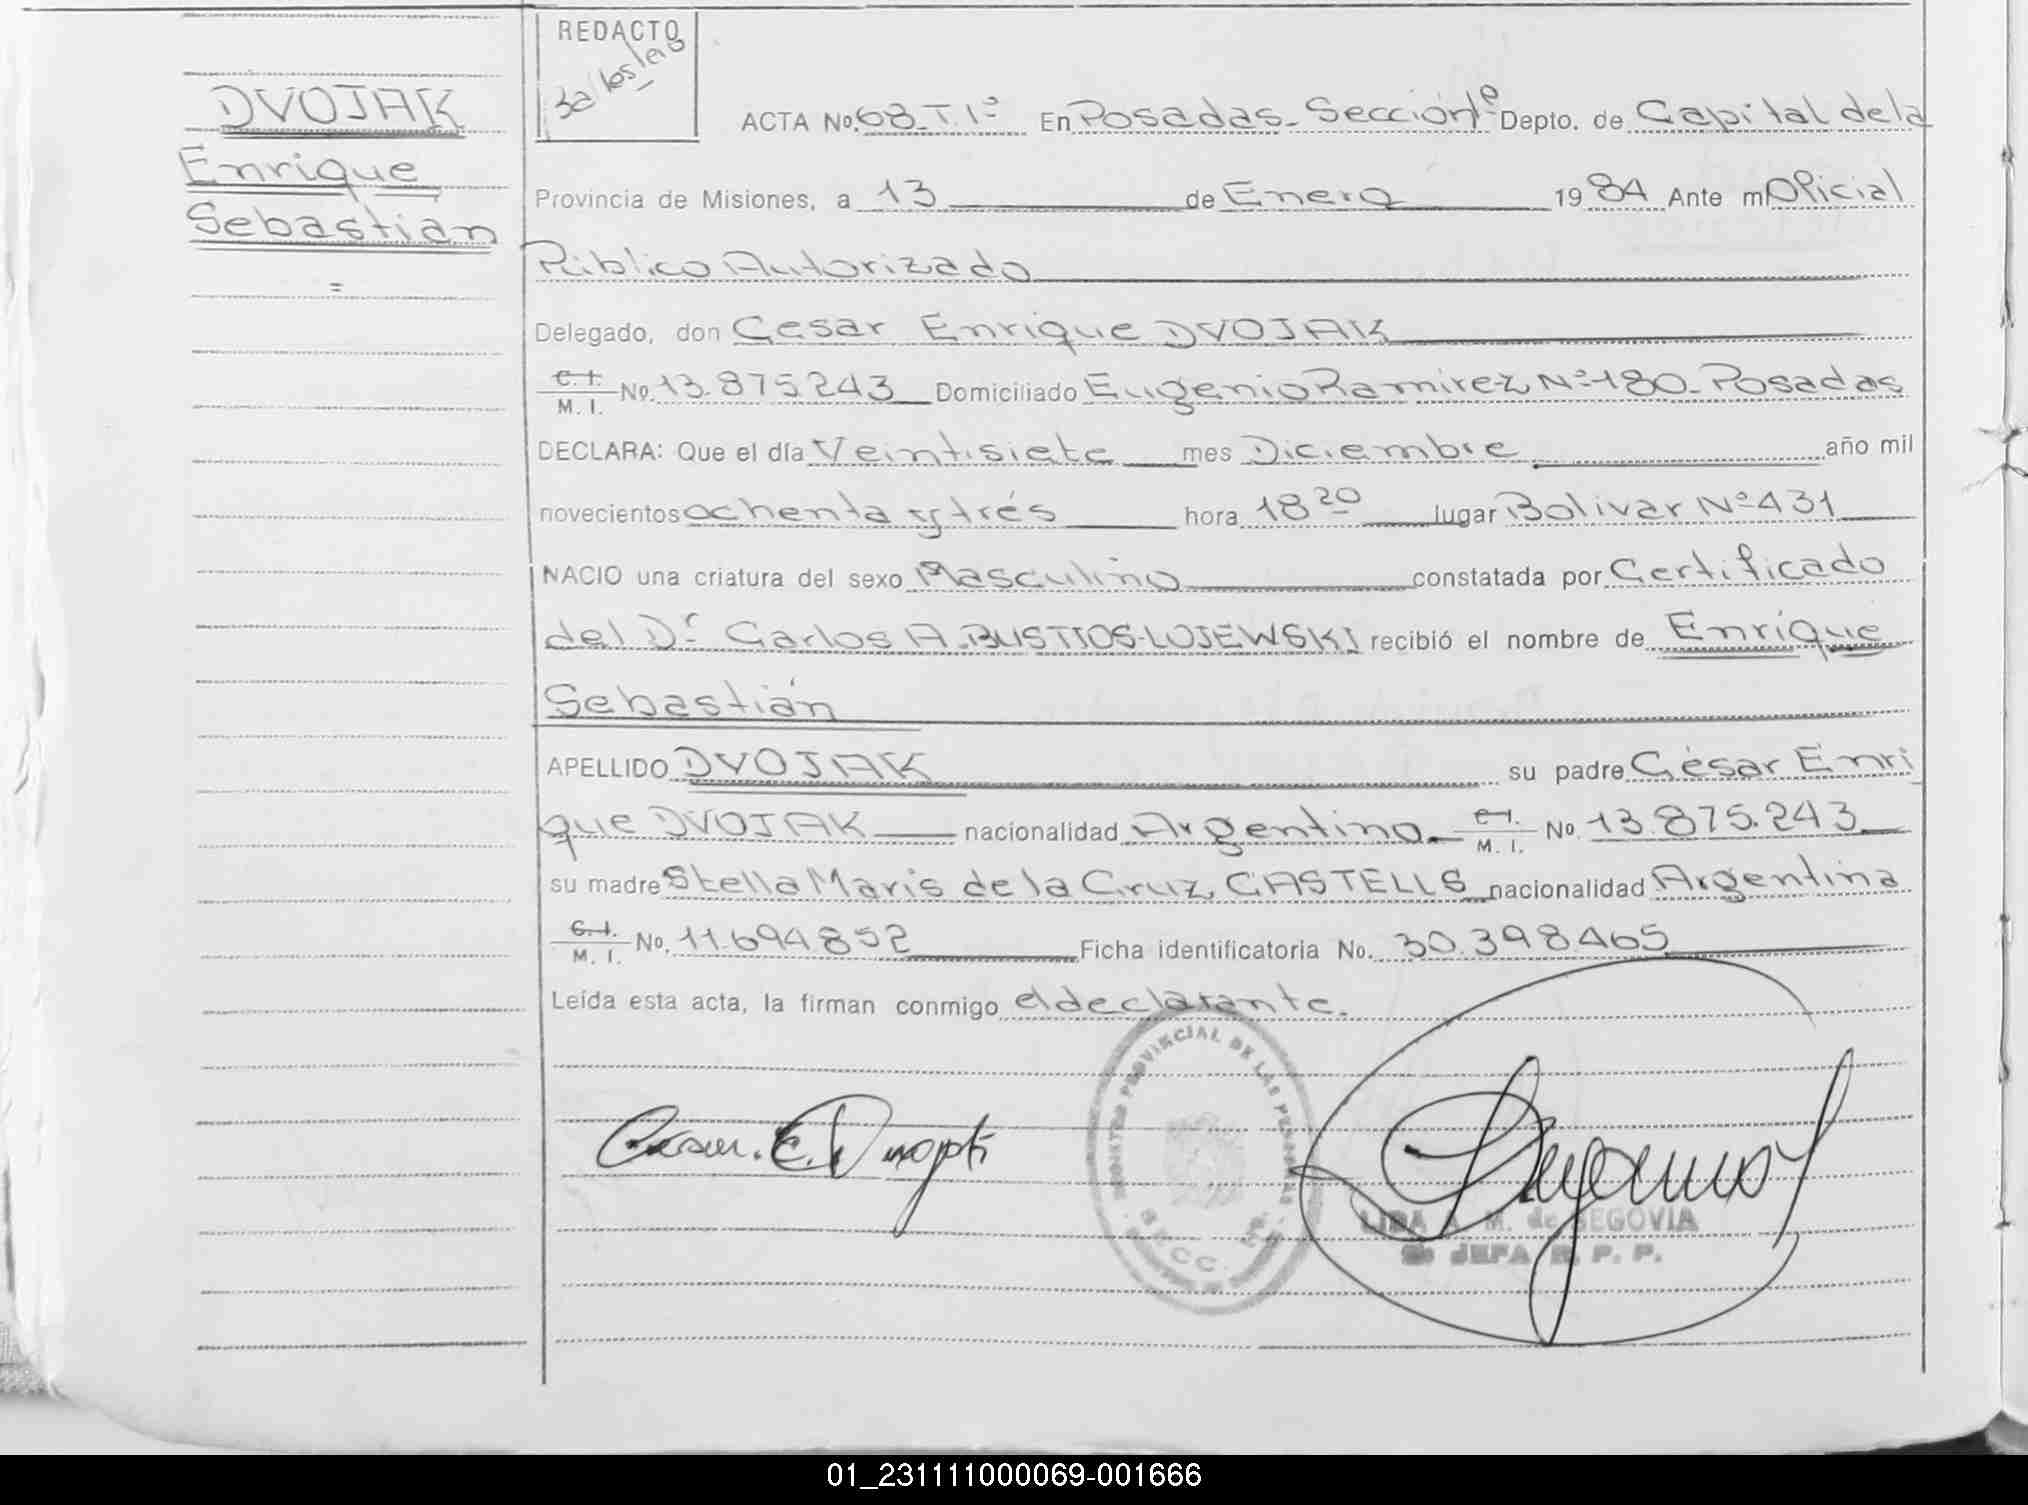 DVOJAK
Enrique
Sebastián
=
REDACTO
ACTA No. 68_T.1º En Posadas_Sección 1º Depto. de Capital de la
Provincia de Misiones, a 13 de Enero 1984 Ante mí Oficial
Público Autorizado
Delegado, don Cesar Enrique DVOJAK
C.I. / M. I. No. 13.875243 Domiciliado Eugenio Ramirez Nº 180_Posadas
DECLARA: Que el día Veintisiete mes Diciembre año mil
novecientos ochenta y trés hora 18 20 lugar Bolivar Nº 431
NACIO una criatura del sexo Masculino constatada por Certificado
del Dr. Carlos A. BUSTTOS-LOJEWSKI recibió el nombre de Enrique
Sebastián
APELLIDO DVOJAK su padre César Enri
que DVOJAK nacionalidad Argentino. C.I. / M. I. No. 13.875.243
su madre Stella Maris de la Cruz, CASTELLS nacionalidad Argentina
C.I. / M. I. No. 11.694.852 Ficha identificatoria No. 30.398465
Leída esta acta, la firman conmigo el declarante.
REGISTRO PROVINCIAL DE LAS PERSONAS
SECC. 1ra.
LIDA A. M. de SEGOVIA
JEFA R. P. P.
01_231111000069-001666